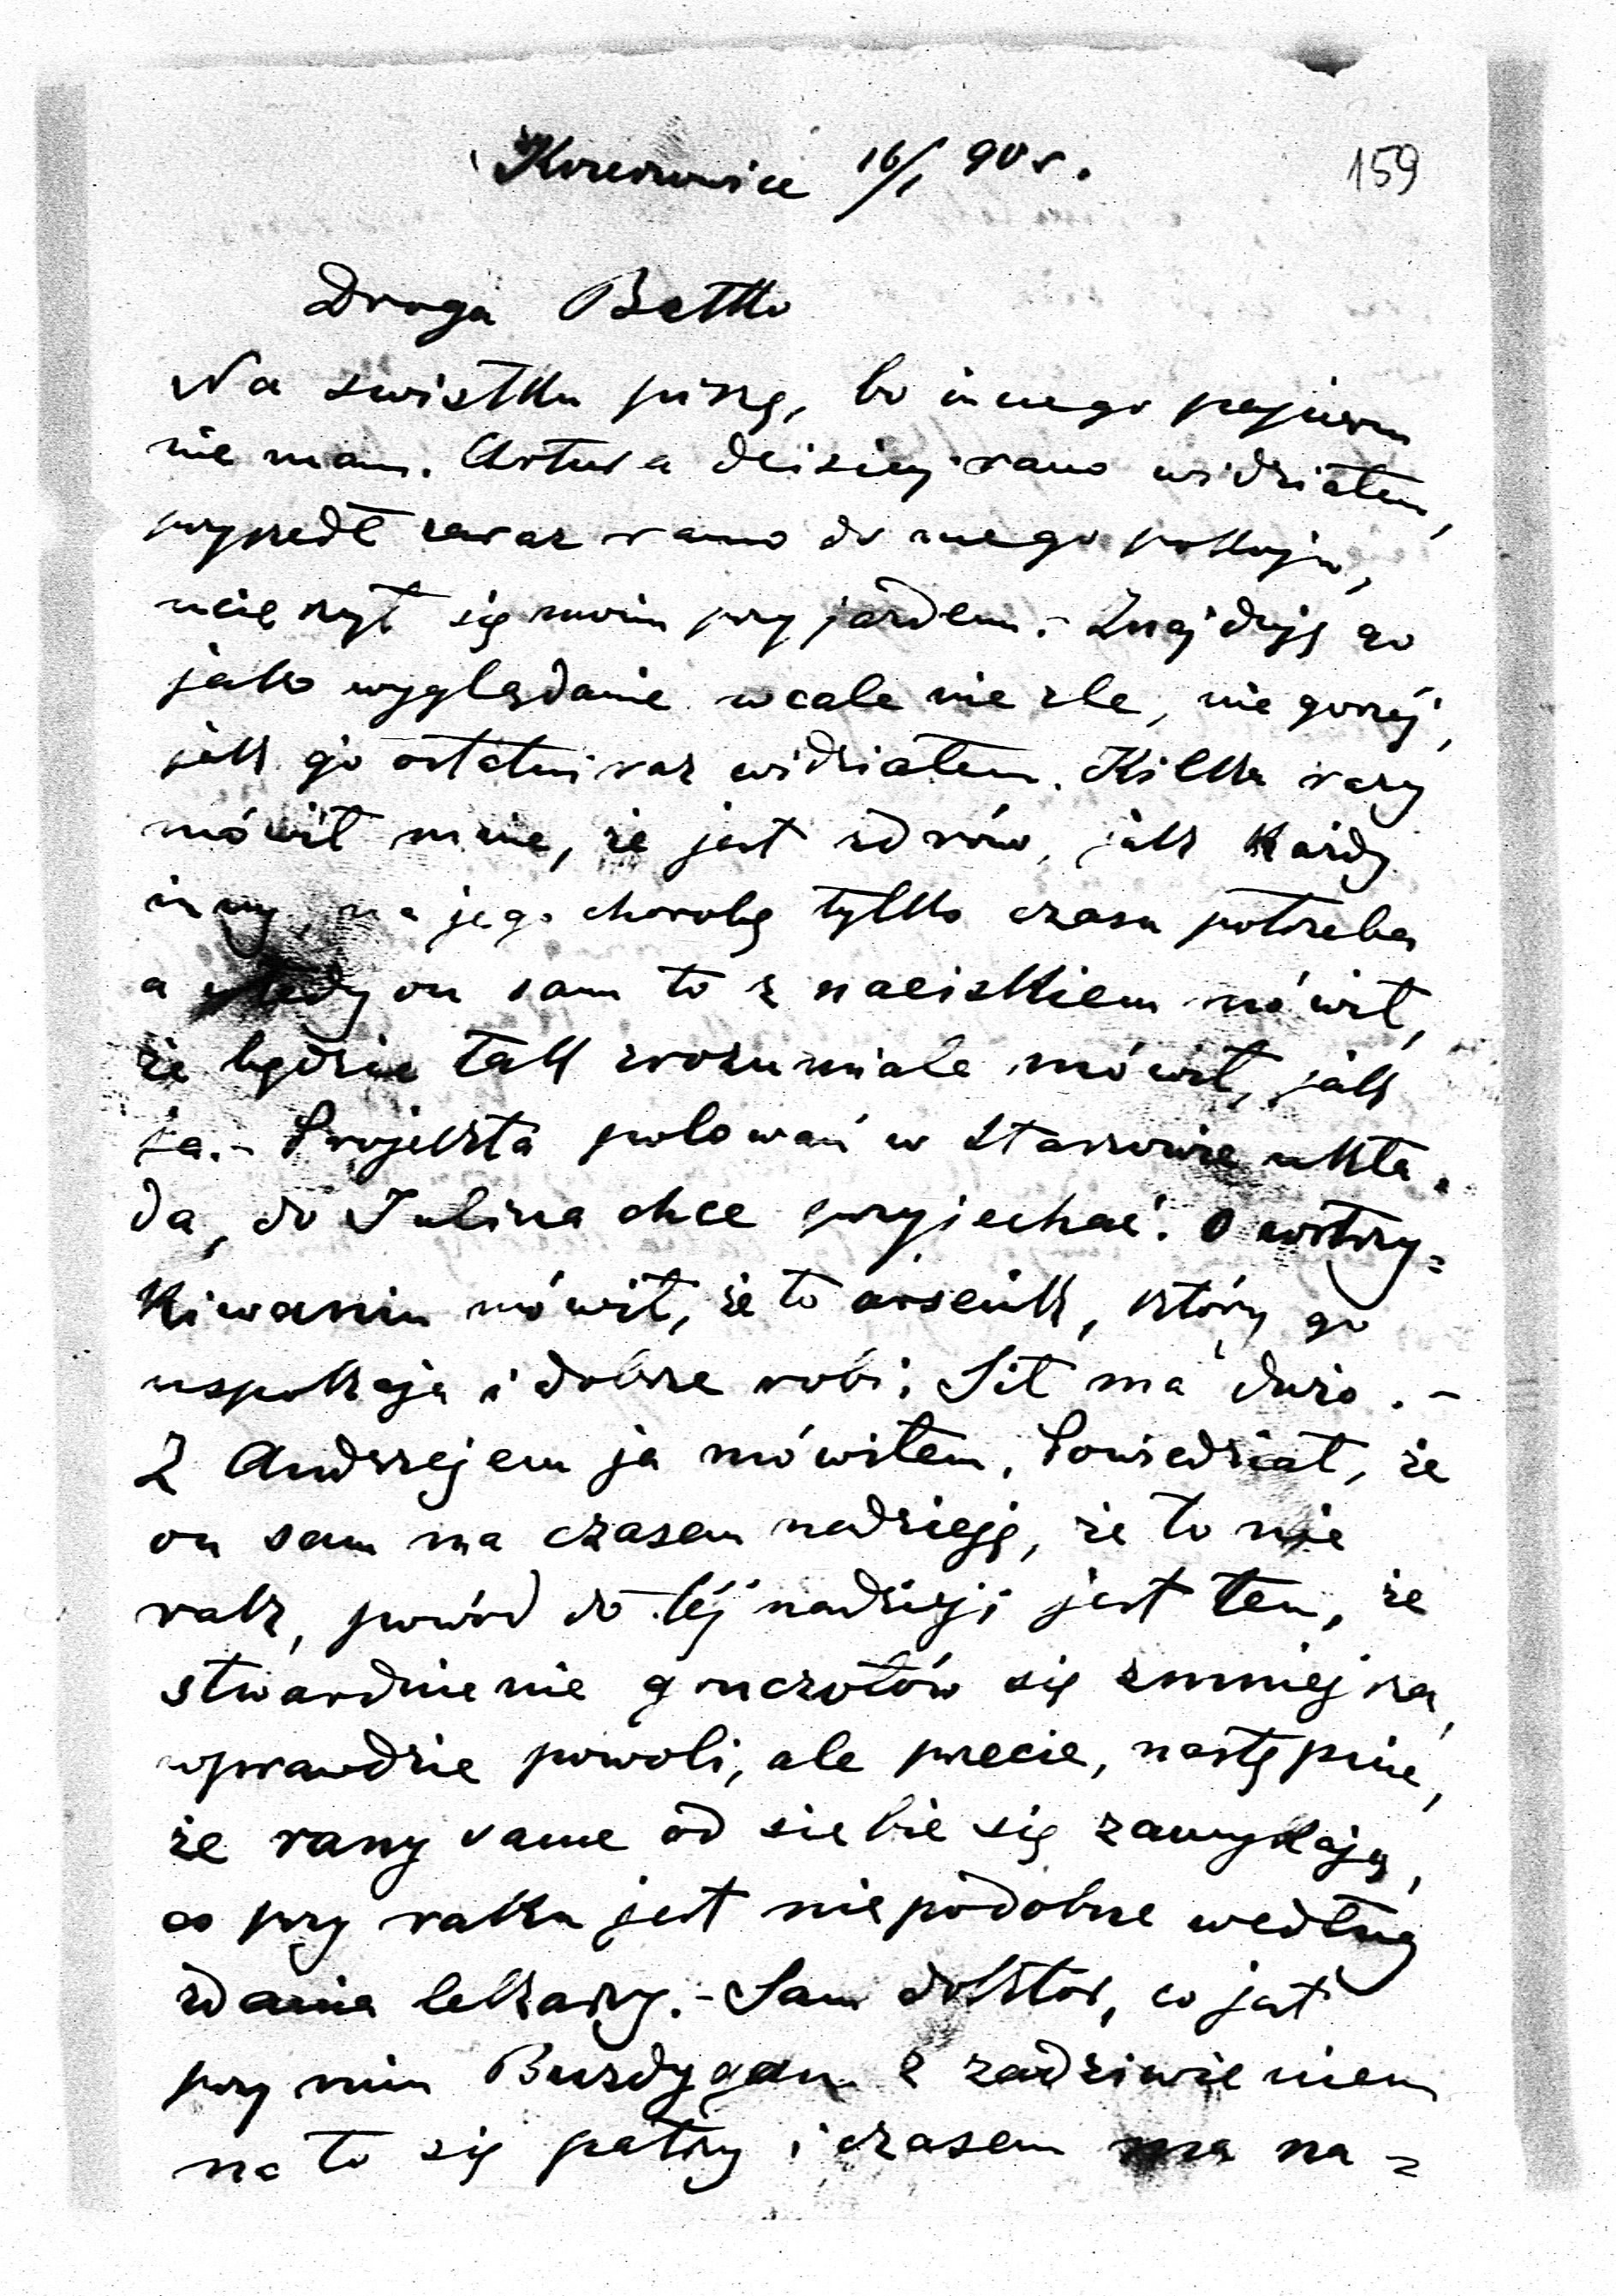 Krzeszowice 16/1 90 r.
159
Droga Betko
Na swistku piszę, bo innego papieru
nie mam. Artura dzisiej rano widziałem,
przyszedł zaraz rano do mego pokoju,
ucieszył się moim przyjazdem.- Znajduję go
jako wyglądanie wcale nie zle, nie gorzéj,
jak go ostatni raz widziałem. Kilka razy
mówił mnie, że jest zdrów, jak każdy
inny, na jego chorobę tylko czasu potrzeba
a wtedy on sam to z naciskiem mówił,
że będzie tak zrozumiale mówił, jak
ja.- Projekta polowań w Staszowie ukła-
da, do Julina chce przyjechać. O wstrzy=
kiwaniu mówił, że to arsenik, który go
uspokaja i dobrze robi. Sił ma dużo.-
Z Andrzejem ja mówiłem, Powiedział, że
on sam ma czasem nadzieję, że to nie
rak, powód do téj nadzieji jest ten, że
stwardnienie gruczołów się zmniejsza,
wprawdzie powoli, ale przecie, następnie,
że rany same od siebie się zamykają,
co przy raku jest niepodobne według
zdania lekarzy.- Sam doktor, co jest
przy nim Burdygan z zadziwieniem
na to się patrzy i czasem ma na=